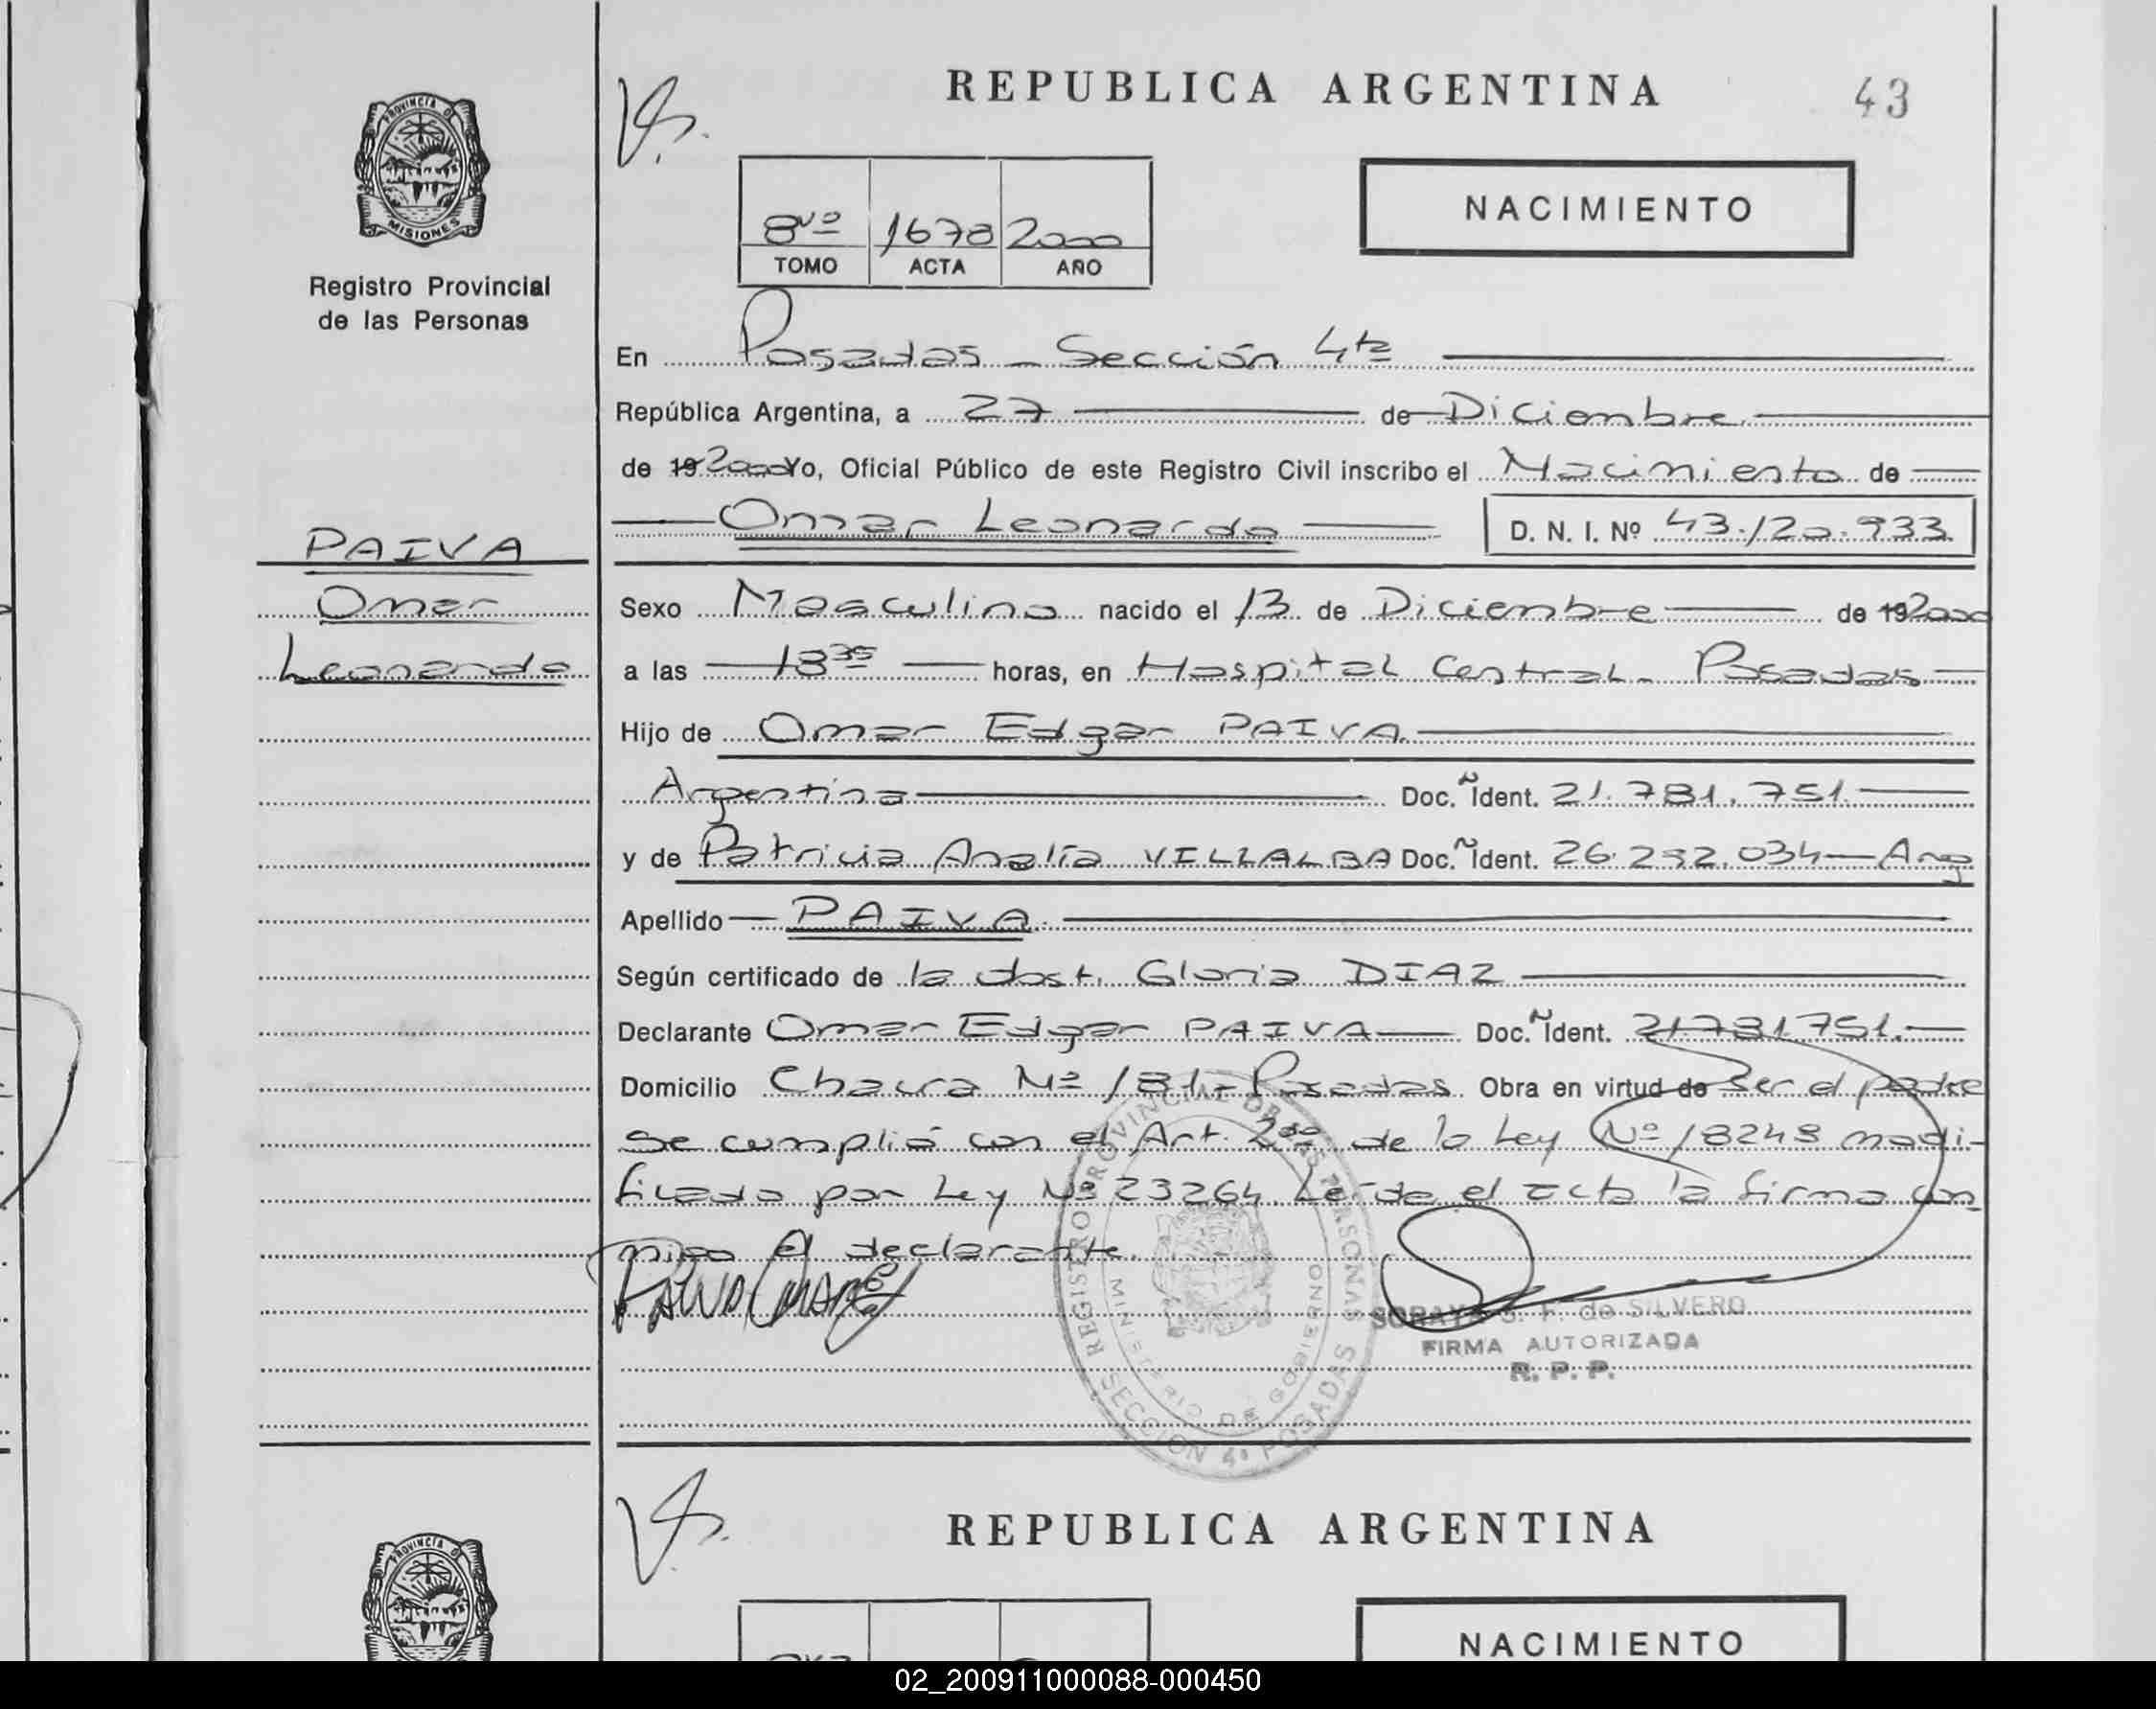 REPUBLICA ARGENTINA
43
PROVINCIA D
MISIONES
Registro Provincial
de las Personas
NACIMIENTO
8vo 1678 2000
TOMO ACTA AÑO
En Posadas - Sección 4ta
República Argentina, a 27 de Diciembre
de 19 2000 Yo, Oficial Público de este Registro Civil inscribo el Nacimiento de
Omar Leonardo D. N. I. Nº 43.120.933
PAIVA
Omar
Leonardo
Sexo Masculino nacido el 13 de Diciembre de 19 2000
a las 18 35 horas, en Hospital Central - Posadas
Hijo de Omar Edgar PAIVA
Argentina Doc. Ident. 21.781.751
y de Patricia Analía VILLALBA Doc. Ident. 26.292.034 - Arg
Apellido PAIVA
Según certificado de la obst. Gloria DIAZ
Declarante Omar Edgar PAIVA Doc. Ident. 21.781.751.
Domicilio Chacra Nº 181 - Posadas Obra en virtud de Ser el padre
Se cumplió con el Art. 2do de la Ley Nº 18248 modi-
ficado por Ley Nº 23264. Leída el acta la firma con
migo el declarante.
REGISTRO PROVINCIAL DE LAS PERSONAS
MINISTERIO DE GOBIERNO
SECCION 4ª POSADAS
SORAYA S. F. de SILVERO
FIRMA AUTORIZADA
R. P. P.
REPUBLICA ARGENTINA
PROVINCIA D
NACIMIENTO
02_200911000088-000450